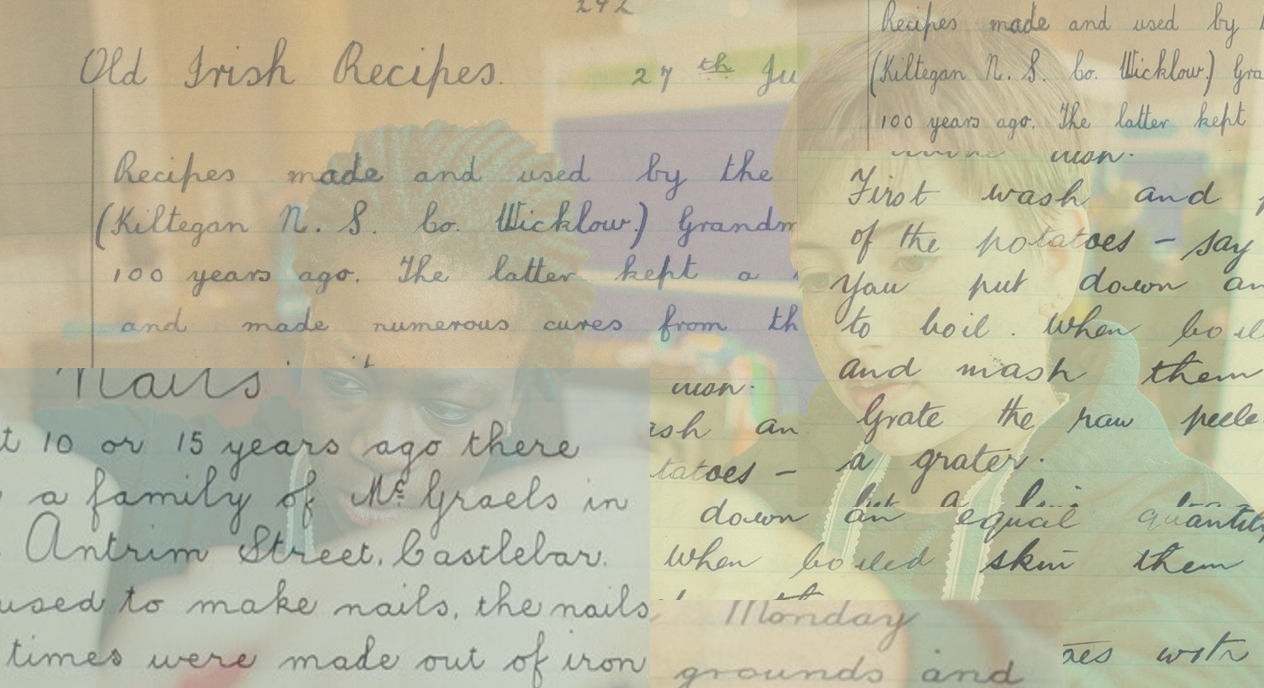 292
Old Irish Recipes.
27th Ju
Recipes made and used by the
(Kiltegan N. S. Co. Wicklow.) Grandm
100 years ago. The latter kept a
and made numerous cures from th
Recipes made and used by
(Kiltegan N. S. Co. Wicklow.) Gra
100 years ago. The latter kept
First wash and
of the potatoes – say
You put down an
to boil. When boiled
and mash them
Grate the raw peele
a grater.
Nails
t 10 or 15 years ago there
a family of Mc Graels in
Antrim Street, Castlebar.
used to make nails, the nails
times were made out of iron
ash an
tatoes –
down an equal quantity
When boiled skin them
Monday
grounds and
oes with